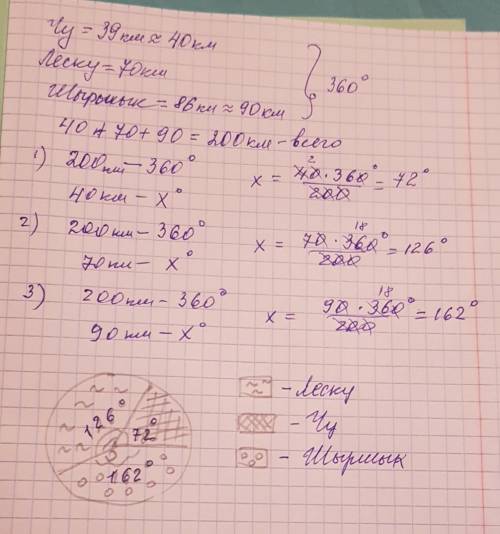 Чу = 39 км ≈ 40 км
Леску = 70 км
Шыршык = 86 км ≈ 90 км
360°
40 + 70 + 90 = 200 км - всего
1) 200 км — 360°
40 км — x°
x = 40 · 360° / 200 = 72°
2
2) 200 км — 360°
70 км — x°
x = 70 · 360° / 200 = 126°
18
3) 200 км — 360°
90 км — x°
x = 90 · 360° / 200 = 162°
18
126°
72°
162°
- Леску
- Чу
- Шыршык